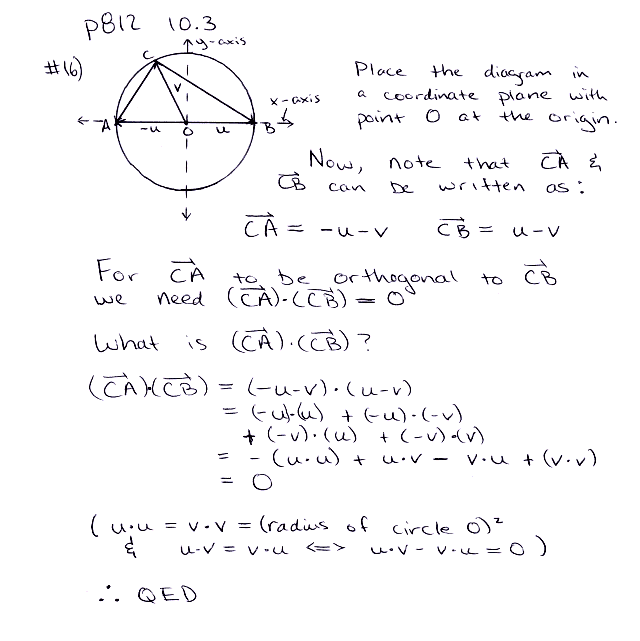 p812 10.3
#16)
y-axis
C
v
x-axis
A -u O u B
Place the diagram in
a coordinate plane with
point O at the origin.
Now, note that CA⃗ &
CB⃗ can be written as:
CA⃗ = -u-v CB⃗ = u-v
For CA⃗ to be orthogonal to CB⃗
we need (CA⃗)·(CB⃗) = 0
What is (CA⃗)·(CB⃗)?
(CA⃗)·(CB⃗) = (-u-v)·(u-v)
= (-u)·(u) + (-u)·(-v)
+ (-v)·(u) + (-v)·(v)
= -(u·u) + u·v - v·u + (v·v)
= 0
( u·u = v·v = (radius of circle O)²
& u·v = v·u <=> u·v - v·u = 0 )
∴ QED